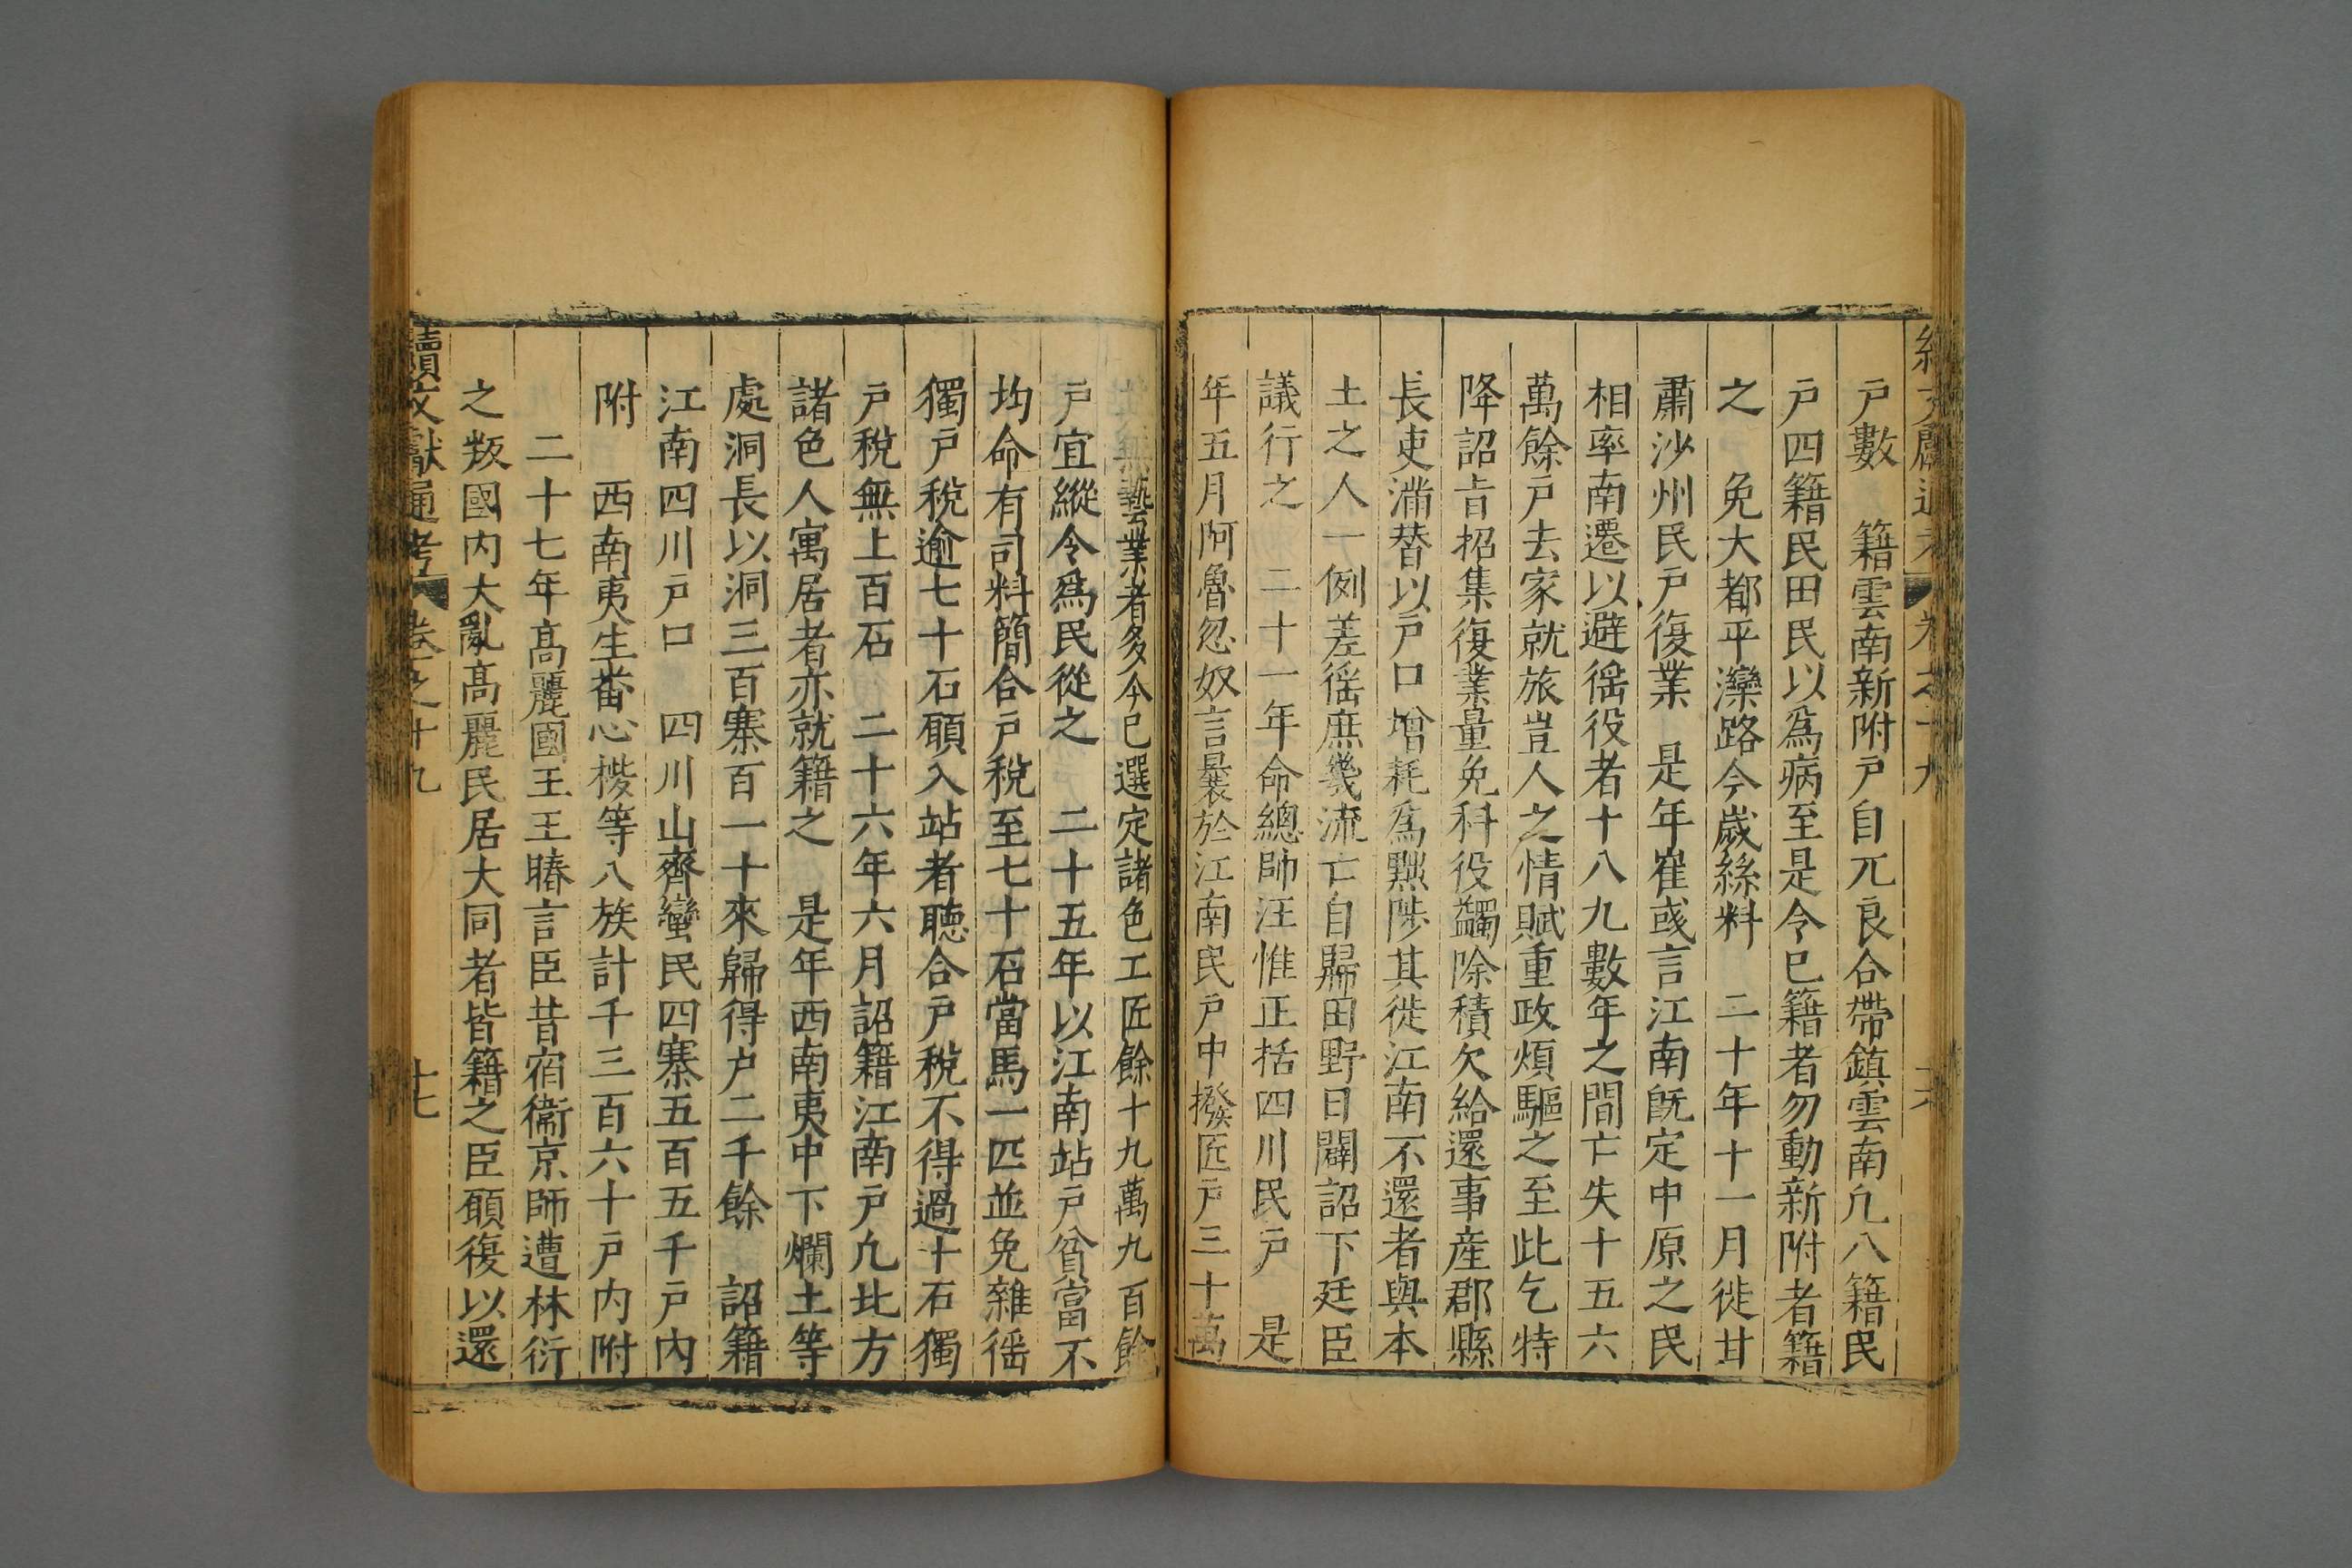 戶數　籍雲南新附戶自兀良合帶鎮雲南凢八籍民
戶四籍民田民以爲病至是令已籍者勿動新附者籍
之　免大都平灤路今歲絲料　二十年十一月徙甘
肅沙州民戶復業　是年崔彧言江南旣定中原之民
相率南遷以避徭役者十八九數年之間亡失十五六
萬餘戶去家就旅豈人之情賦重政煩驅之至此乞特
降詔旨招集復業量免科役蠲除積欠給還事產郡縣
長吏滿替以戶口增耗爲黜陟其徙江南不還者與本
土之人一例差徭庶幾流亡自歸田野日闢詔下廷臣
議行之　二十一年命總帥汪惟正括四川民戶　是
年五月阿魯忽奴言曩於江南民戶中撥匠戶三十萬
無藝業者多今已選定諸色工匠餘十九萬九百餘
戶宜縱令爲民從之　二十五年以江南站戶貧當不
均命有司料簡合戶稅至七十石當馬一匹並免雜徭
獨戶稅逾七十石願入站者聽合戶稅不得過十石獨
戶稅無上百石　二十六年六月詔籍江南戶凢北方
諸色人寓居者亦就籍之　是年西南夷中下爛土等
處洞長以洞三百寨百一十來歸得户二千餘　詔籍
江南四川戶口　四川山齊蠻民四寨五百五千戶內
附　西南夷生蕃心樓等八族計千三百六十戶內附
二十七年高麗國王王賰言臣昔宿衞京師遭林衍
之叛國內大亂高麗民居大同者皆籍之臣願復以還
續文獻通考　卷之十九　十七